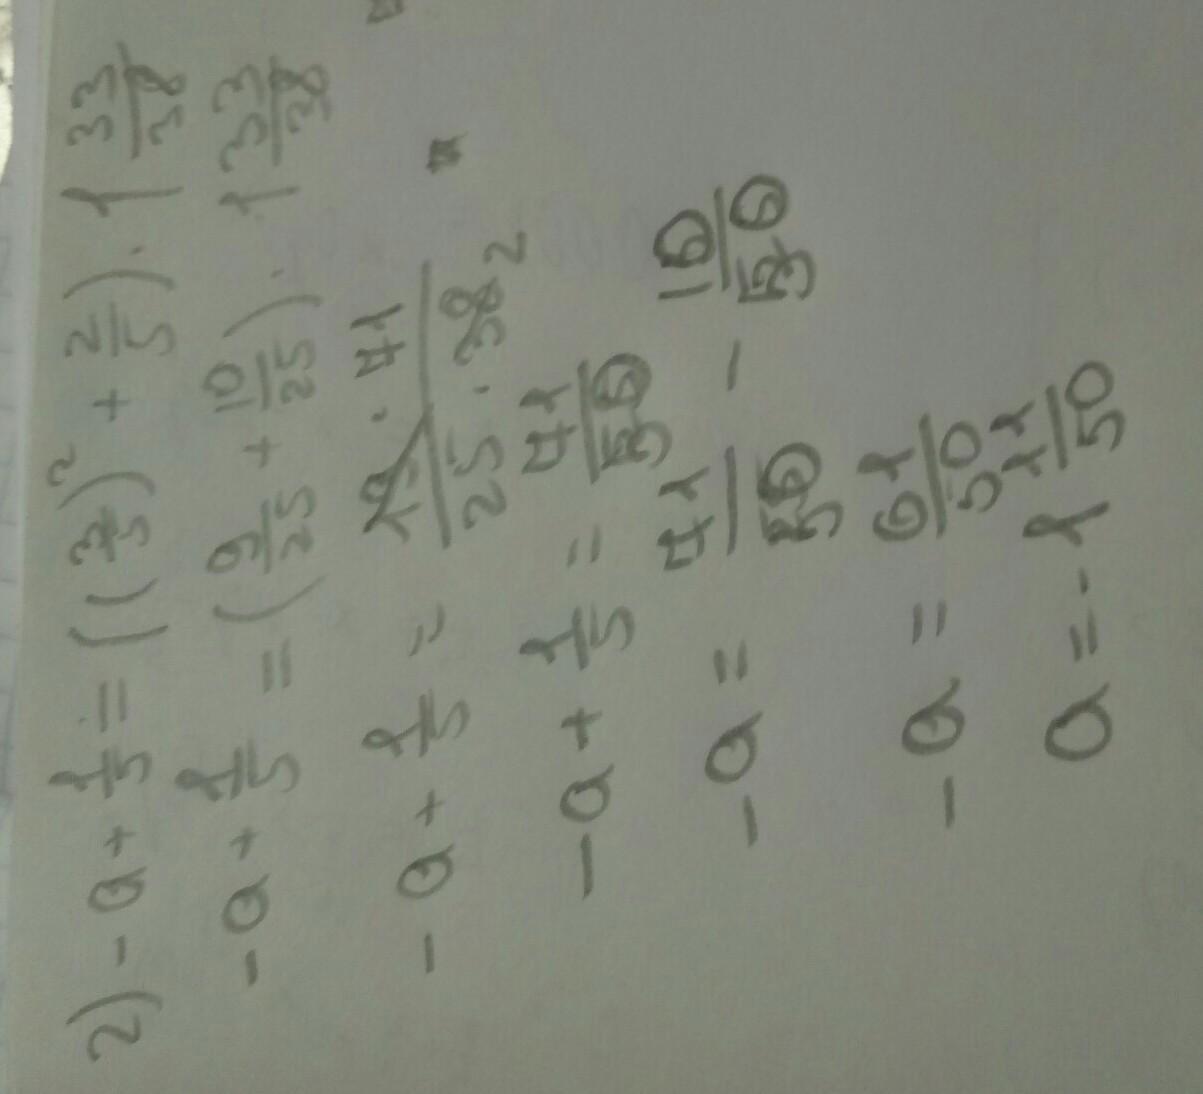 2) -a + 1/5 = ((3/5)² + 2/5) · 1 33/38
-a + 1/5 = (9/25 + 10/25) · 1 33/38
-a + 1/5 = 19 · 71 / 25 · 38 2
-a + 1/5 = 71/50
-a = 71/50 - 10/50
-a = 61/50
a = -1 11/50